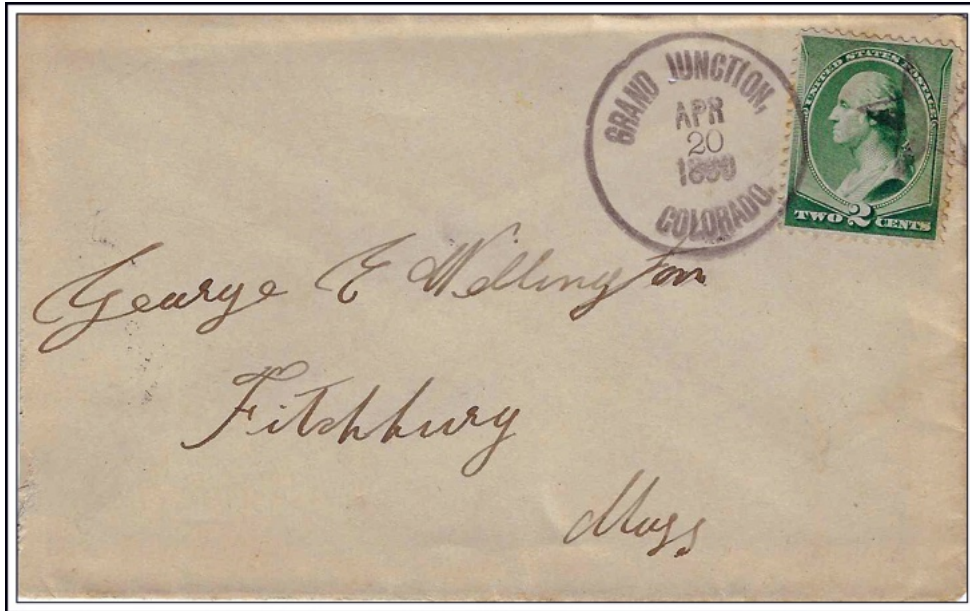 GRAND JUNCTION,
APR
20
COLORADO.
UNITED STATES POSTAGE
TWO 2 CENTS
George E Wellington
Fitchburg
Mass